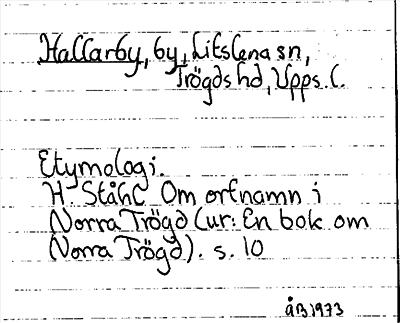 Hallarby, by, Litslena sn,
Trögds hd, Upps. l.
Etymologi.
H. Ståhl Om ortnamn i
Norra Trögd (ur: En bok om
Norra Trögd). s. 10
ÅB 1973